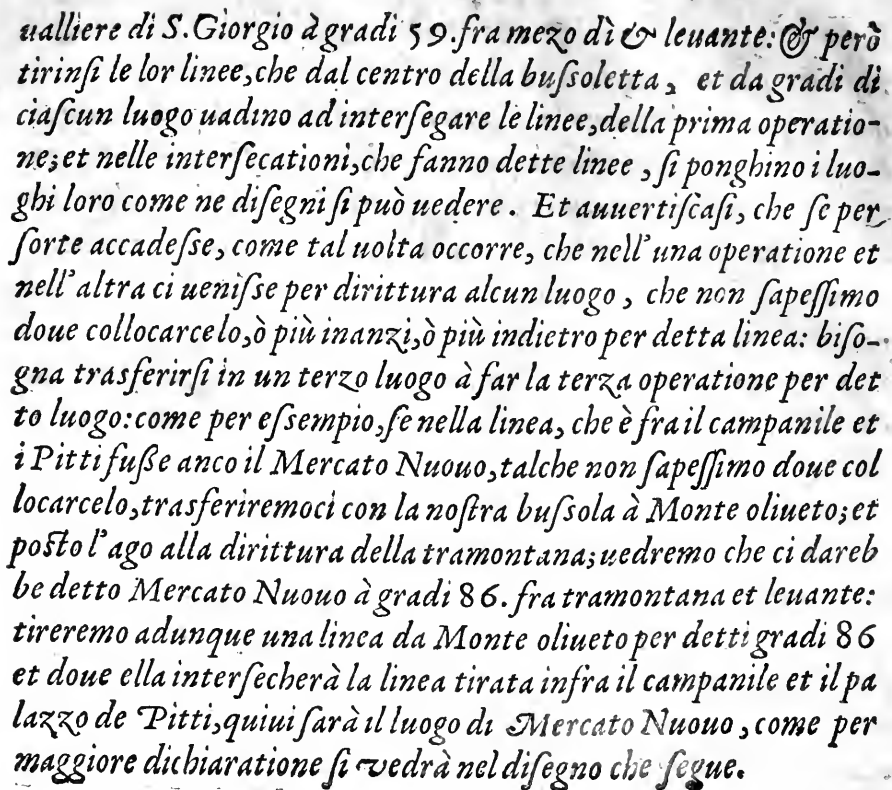 ualliere di S.Giorgio à gradi 59.fra mezo dì & leuante: & però
tirinſi le lor linee, che dal centro della buſsoletta, et da gradi di
ciaſcun luogo uadino ad interſegare le linee, della prima operatio-
ne; et nelle interſecationi, che fanno dette linee, ſi ponghino i luo-
ghi loro come ne diſegni ſi può uedere. Et auuertiſcaſi, che ſe per
ſorte accadeſse, come tal uolta occorre, che nell'una operatione et
nell'altra ci ueniſse per dirittura alcun luogo, che non ſapeſſimo
doue collocarcelo, ò più inanzi, ò più indietro per detta linea: biſo-
gna trasferirſi in un terzo luogo à far la terza operatione per det
to luogo: come per eſsempio, ſe nella linea, che è fra il campanile et
i Pitti fuſse anco il Mercato Nuouo, talche non ſapeſſimo doue col
locarcelo, trasferiremoci con la noſtra buſsola à Monte oliueto; et
poſto l'ago alla dirittura della tramontana; uedremo che ci dareb
be detto Mercato Nuouo à gradi 86. fra tramontana et leuante:
tireremo adunque una linea da Monte oliueto per detti gradi 86
et doue ella interſecherà la linea tirata infra il campanile et il pa
lazzo de Pitti, quiui ſarà il luogo di Mercato Nuouo, come per
maggiore dichiaratione ſi vedrà nel diſegno che ſegue.